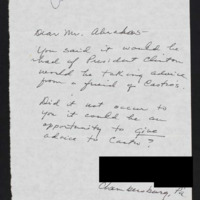 Dear Mr. Abrahams
You said it would be
bad if President Clinton
would be taking advice
from a friend of Castro's.
Did it not occur to
you it could be an
opportunity to give
advice to Castro?
Chambersburg, Pa